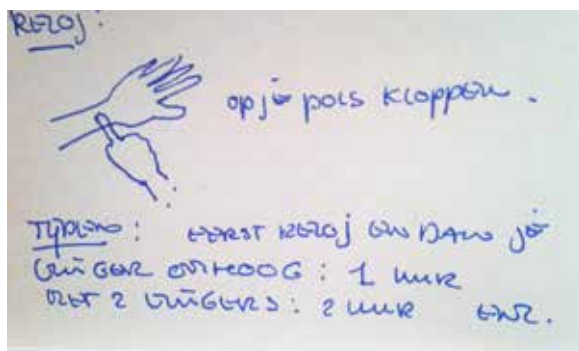 RELOJ:
op je pols kloppen.
TIJDEN: EERST RELOJ EN DAN JE
VINGER OMHOOG: 1 uur
MET 2 VINGERS: 2 uur ENZ.